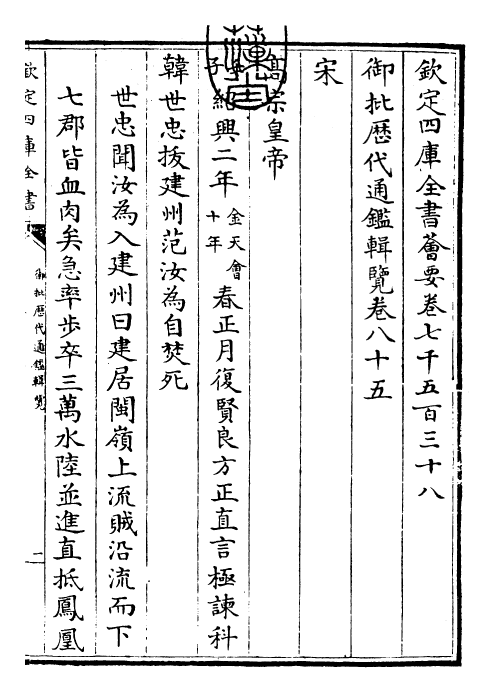 欽定四庫全書薈要卷七千五百三十八
御批歷代通鑑輯覽卷八十五
宋
高宗皇帝
壬子紹興二年金天會十年春正月復賢良方正直言極諫科
韓世忠拔建州范汝為自焚死
世忠聞汝為入建州曰建居閩嶺上流賊沿流而下
七郡皆血肉矣急率步卒三萬水陸並進直抵鳳凰
欽定四庫全書
御批歷代通鑑輯覽